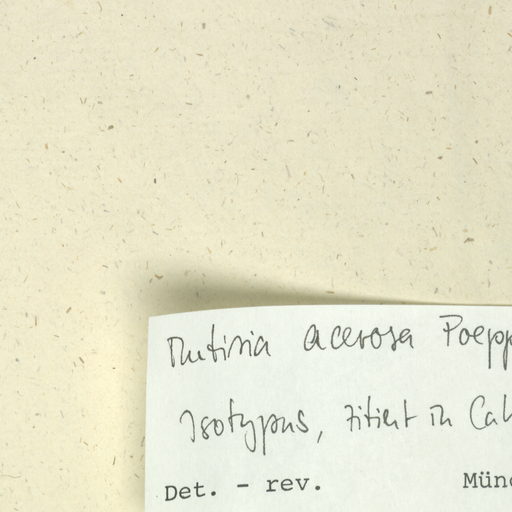 Mutisia acerosa Poepp
Isotypus, zitiert in Cab
Det. - rev. Münc